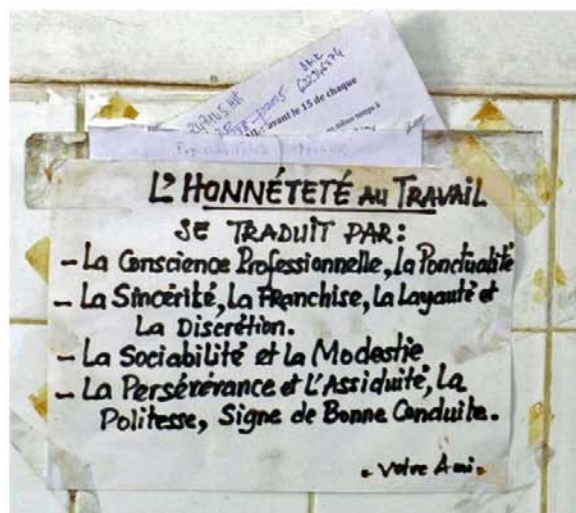 avant le 15 de chaque
en même temps à
L'HONNÉTETÉ AU TRAVAIL
SE TRADUIT PAR:
- La Conscience Professionnelle, la Ponctualité
- La Sincérité, la Franchise, la Layauté et
La Discrétion.
- La Sociabilité et la Modestie
- La Persévérance et L'Assiduité, La
Politesse, Signe de Bonne Conduite.
- Votre Ami -